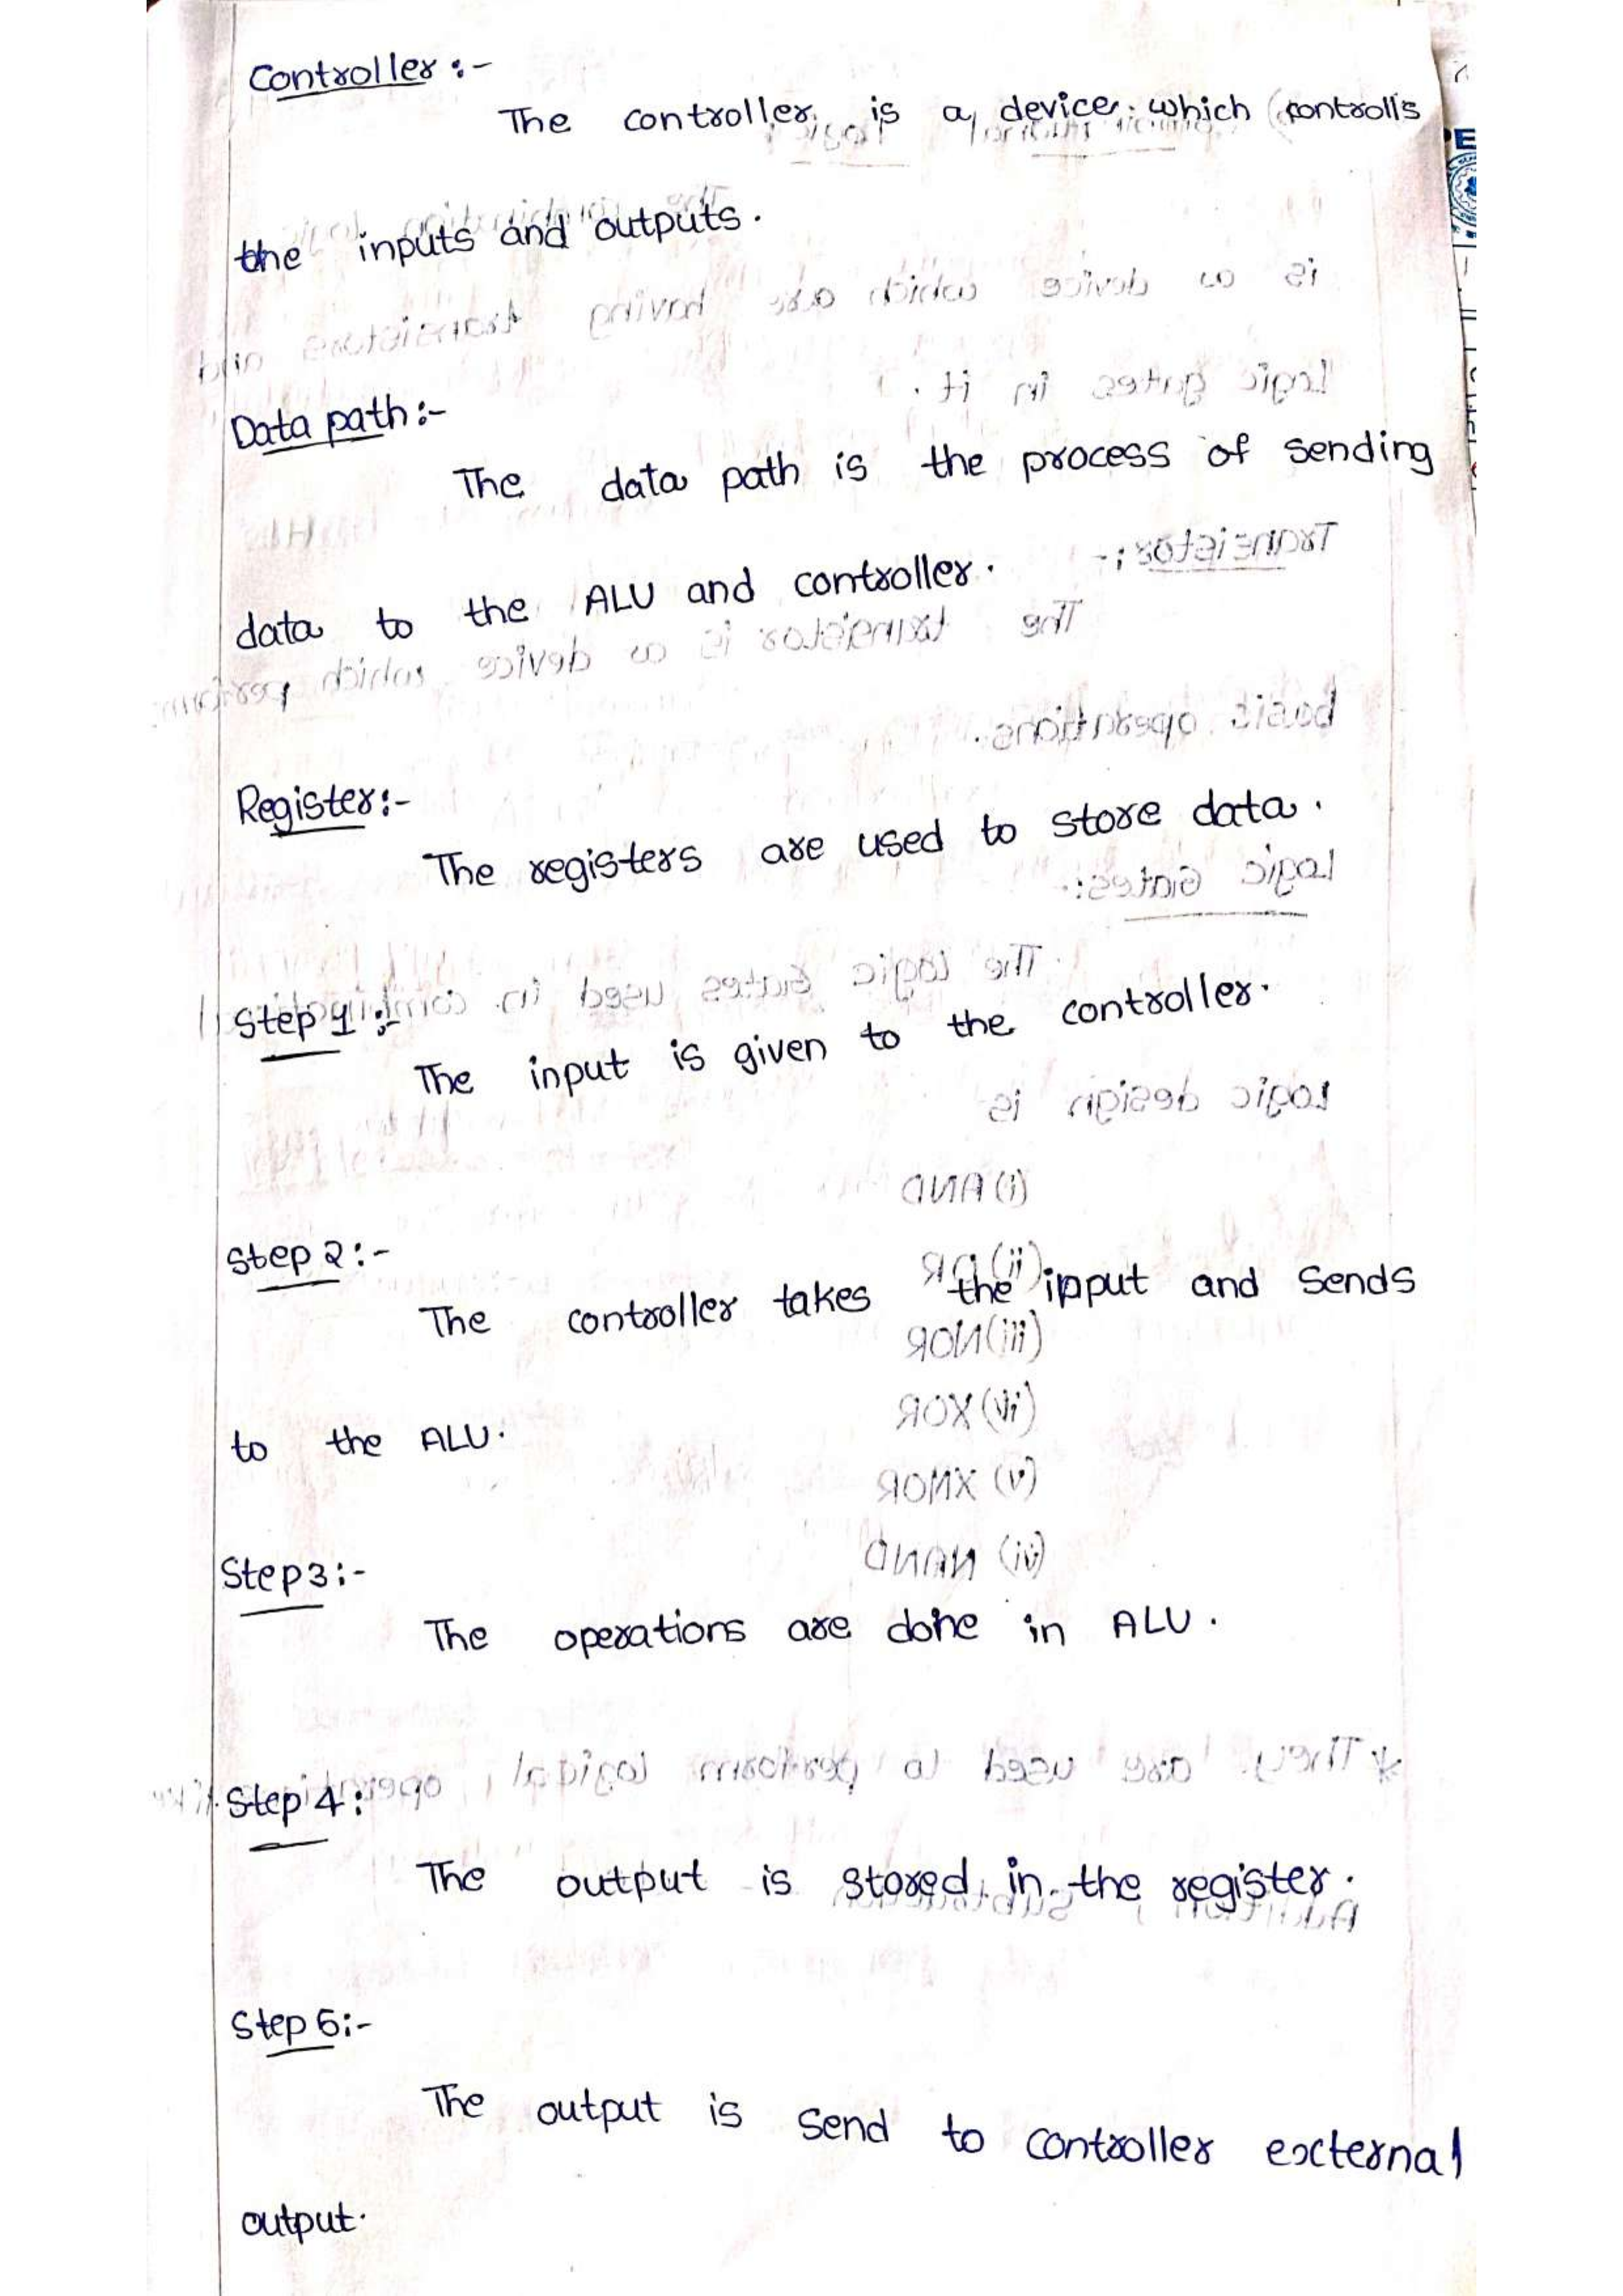 Controller :-
The controller is a device which controlls
the inputs and outputs.
Data path :-
The data path is the process of sending
data to the ALU and controller.
Register :-
The registers are used to store data.
Step 1 :-
The input is given to the controller.
Step 2 :-
The controller takes the input and sends
to the ALU.
Step 3 :-
The operations are done in ALU.
Step 4 :
The output is stored in the register.
Step 5 :-
The output is send to controller external
output.